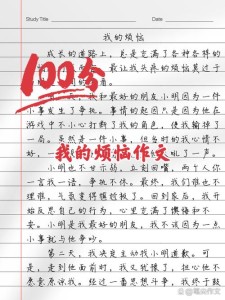 Study Title
Date
我的烦恼
成长的道路上，总是充满了各种各样的
最让我头疼的烦恼莫过于
100分
我和最好的朋友小明因为一件
小事发生了争执。事情的起因只是因为他在
游戏中不小心打翻了我的角色，使我输掉了
一局。虽然是一件小事，但当时的我心情不
好，
了一声。
我的烦恼作文
小明也不甘示弱，立刻回嘴，两个人你
一言我一语，争执不休。最终，我们谁也不
理谁，气氛变得尴尬极了。回到家后，我开
始反思自己的行为，心里充满了懊悔和不
安。小明是我最好的朋友，我不该因为一点
小事就与他争吵。
第二天，我决定主动找小明道歉。可
是，走到他面前时，我又犹豫了，担心他不
愿意原谅我。经过一番思想斗争，我终于鼓